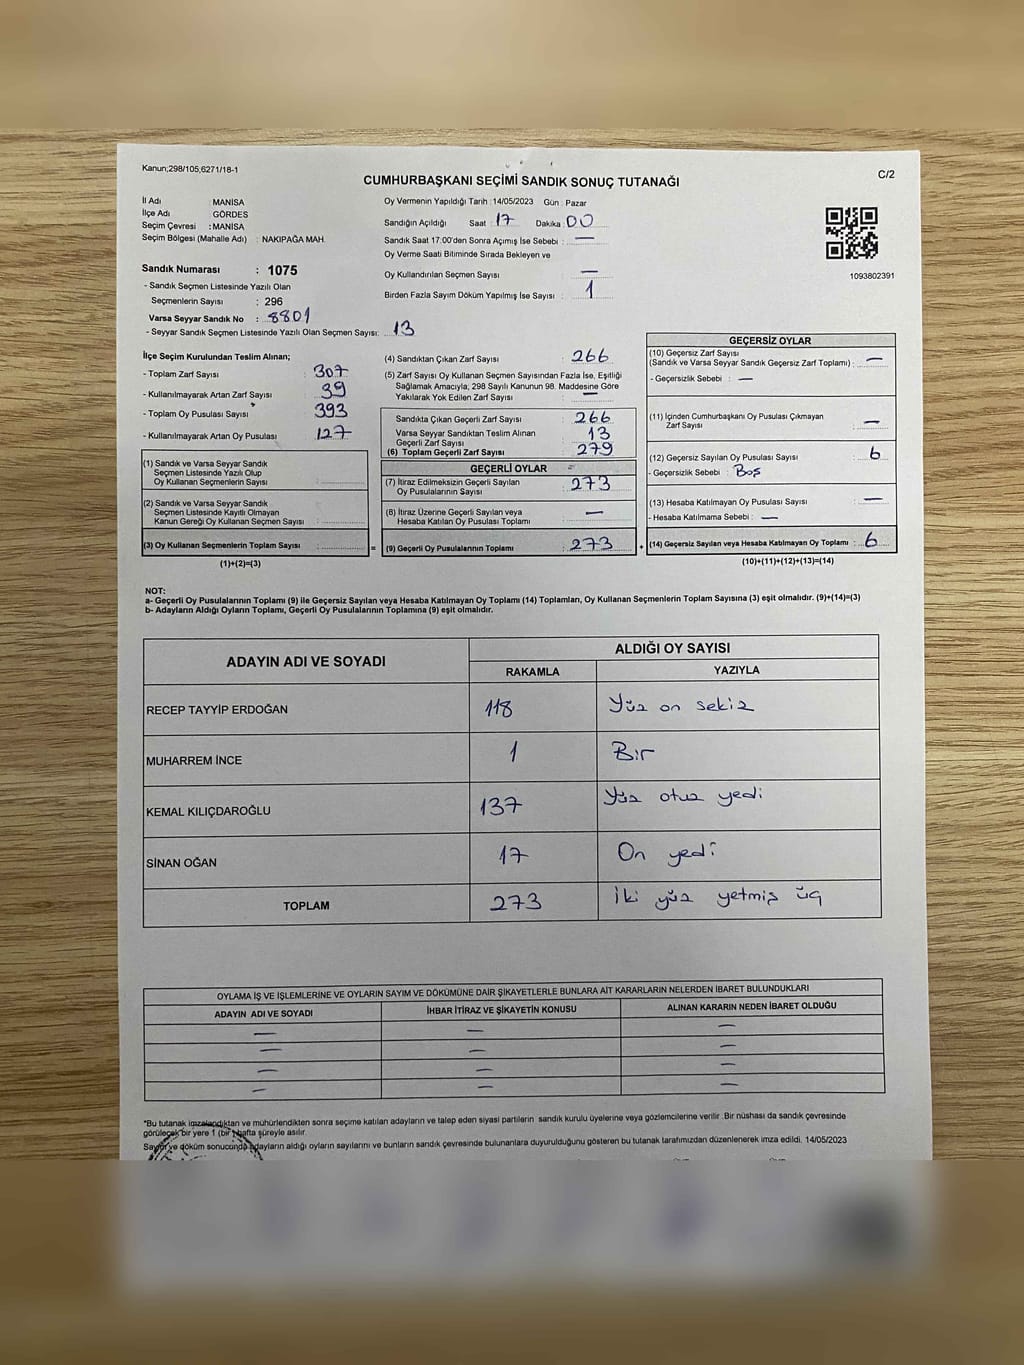 Kanun;298/105,6271/18-1
C/2
CUMHURBAŞKANI SEÇİMİ SANDIK SONUÇ TUTANAĞI
İl Adı MANİSA
İlçe Adı GÖRDES
Seçim Çevresi : MANİSA
Seçim Bölgesi (Mahalle Adı) : NAKIPAĞA MAH.
Sandık Numarası : 1075
- Sandık Seçmen Listesinde Yazılı Olan
Seçmenlerin Sayısı : 296
Varsa Seyyar Sandık No : 8801
- Seyyar Sandık Seçmen Listesinde Yazılı Olan Seçmen Sayısı: 13
Oy Vermenin Yapıldığı Tarih : 14/05/2023 Gün : Pazar
Sandığın Açıldığı Saat : 17 Dakika : 00
Sandık Saat 17:00'den Sonra Açımış İse Sebebi : —
Oy Verme Saati Bitiminde Sırada Bekleyen ve
Oy Kullandırılan Seçmen Sayısı : —
Birden Fazla Sayım Döküm Yapılmış İse Sayısı : 1
1093802391
İlçe Seçim Kurulundan Teslim Alınan;
- Toplam Zarf Sayısı : 307
- Kullanılmayarak Artan Zarf Sayısı : 39
- Toplam Oy Pusulası Sayısı : 393
- Kullanılmayarak Artan Oy Pusulası : 127
(1) Sandık ve Varsa Seyyar Sandık
Seçmen Listesinde Yazılı Olup
Oy Kullanan Seçmenlerin Sayısı :
(2) Sandık ve Varsa Seyyar Sandık
Seçmen Listesinde Kayıtlı Olmayan
Kanun Gereği Oy Kullanan Seçmen Sayısı :
(3) Oy Kullanan Seçmenlerin Toplam Sayısı :
(1)+(2)=(3)
=
(4) Sandıktan Çıkan Zarf Sayısı : 266
(5) Zarf Sayısı Oy Kullanan Seçmen Sayısından Fazla İse, Eşitliği
Sağlamak Amacıyla, 298 Sayılı Kanunun 98. Maddesine Göre
Yakılarak Yok Edilen Zarf Sayısı : —
Sandıkta Çıkan Geçerli Zarf Sayısı : 266
Varsa Seyyar Sandıktan Teslim Alınan
Geçerli Zarf Sayısı : 13
(6) Toplam Geçerli Zarf Sayısı : 279
GEÇERLİ OYLAR
(7) İtiraz Edilmeksizin Geçerli Sayılan
Oy Pusulalarının Sayısı : 273
(8) İtiraz Üzerine Geçerli Sayılan veya
Hesaba Katılan Oy Pusulası Toplamı : —
(9) Geçerli Oy Pusulalarının Toplamı : 273
+
GEÇERSİZ OYLAR
(10) Geçersiz Zarf Sayısı
(Sandık ve Varsa Seyyar Sandık Geçersiz Zarf Toplamı) : —
- Geçersizlik Sebebi : —
(11) İçinden Cumhurbaşkanı Oy Pusulası Çıkmayan
Zarf Sayısı : —
(12) Geçersiz Sayılan Oy Pusulası Sayısı : 6
- Geçersizlik Sebebi : Boş
(13) Hesaba Katılmayan Oy Pusulası Sayısı : —
- Hesaba Katılmama Sebebi : —
(14) Geçersiz Sayılan veya Hesaba Katılmayan Oy Toplamı : 6
(10)+(11)+(12)+(13)=(14)
NOT:
a- Geçerli Oy Pusulalarının Toplamı (9) ile Geçersiz Sayılan veya Hesaba Katılmayan Oy Toplamı (14) Toplamları, Oy Kullanan Seçmenlerin Toplam Sayısına (3) eşit olmalıdır. (9)+(14)=(3)
b- Adayların Aldığı Oyların Toplamı, Geçerli Oy Pusulalarının Toplamına (9) eşit olmalıdır.
ADAYIN ADI VE SOYADI ALDIĞI OY SAYISI
RAKAMLA YAZIYLA
RECEP TAYYİP ERDOĞAN 118 Yüz on sekiz
MUHARREM İNCE 1 Bir
KEMAL KILIÇDAROĞLU 137 Yüz otuz yedi
SİNAN OĞAN 17 On yedi
TOPLAM 273 İki yüz yetmiş üç
OYLAMA İŞ VE İŞLEMLERİNE VE OYLARIN SAYIM VE DÖKÜMÜNE DAİR ŞİKAYETLERLE BUNLARA AİT KARARLARIN NELERDEN İBARET BULUNDUKLARI
ADAYIN ADI VE SOYADI İHBAR İTİRAZ VE ŞİKAYETİN KONUSU ALINAN KARARIN NEDEN İBARET OLDUĞU
— — —
— — —
— — —
— — —
"Bu tutanak imzalandıktan ve mühürlendikten sonra seçime katılan adayların ve talep eden siyasi partilerin sandık kurulu üyelerine veya gözlemcilerine verilir. Bir nüshası da sandık çevresinde
görülecek bir yere 1 (bir) hafta süreyle asılır.
Sayım ve döküm sonucunda adayların aldığı oyların sayılarını ve bunların sandık çevresinde bulunanlara duyurulduğunu gösteren bu tutanak tarafımızdan düzenlenerek imza edildi. 14/05/2023